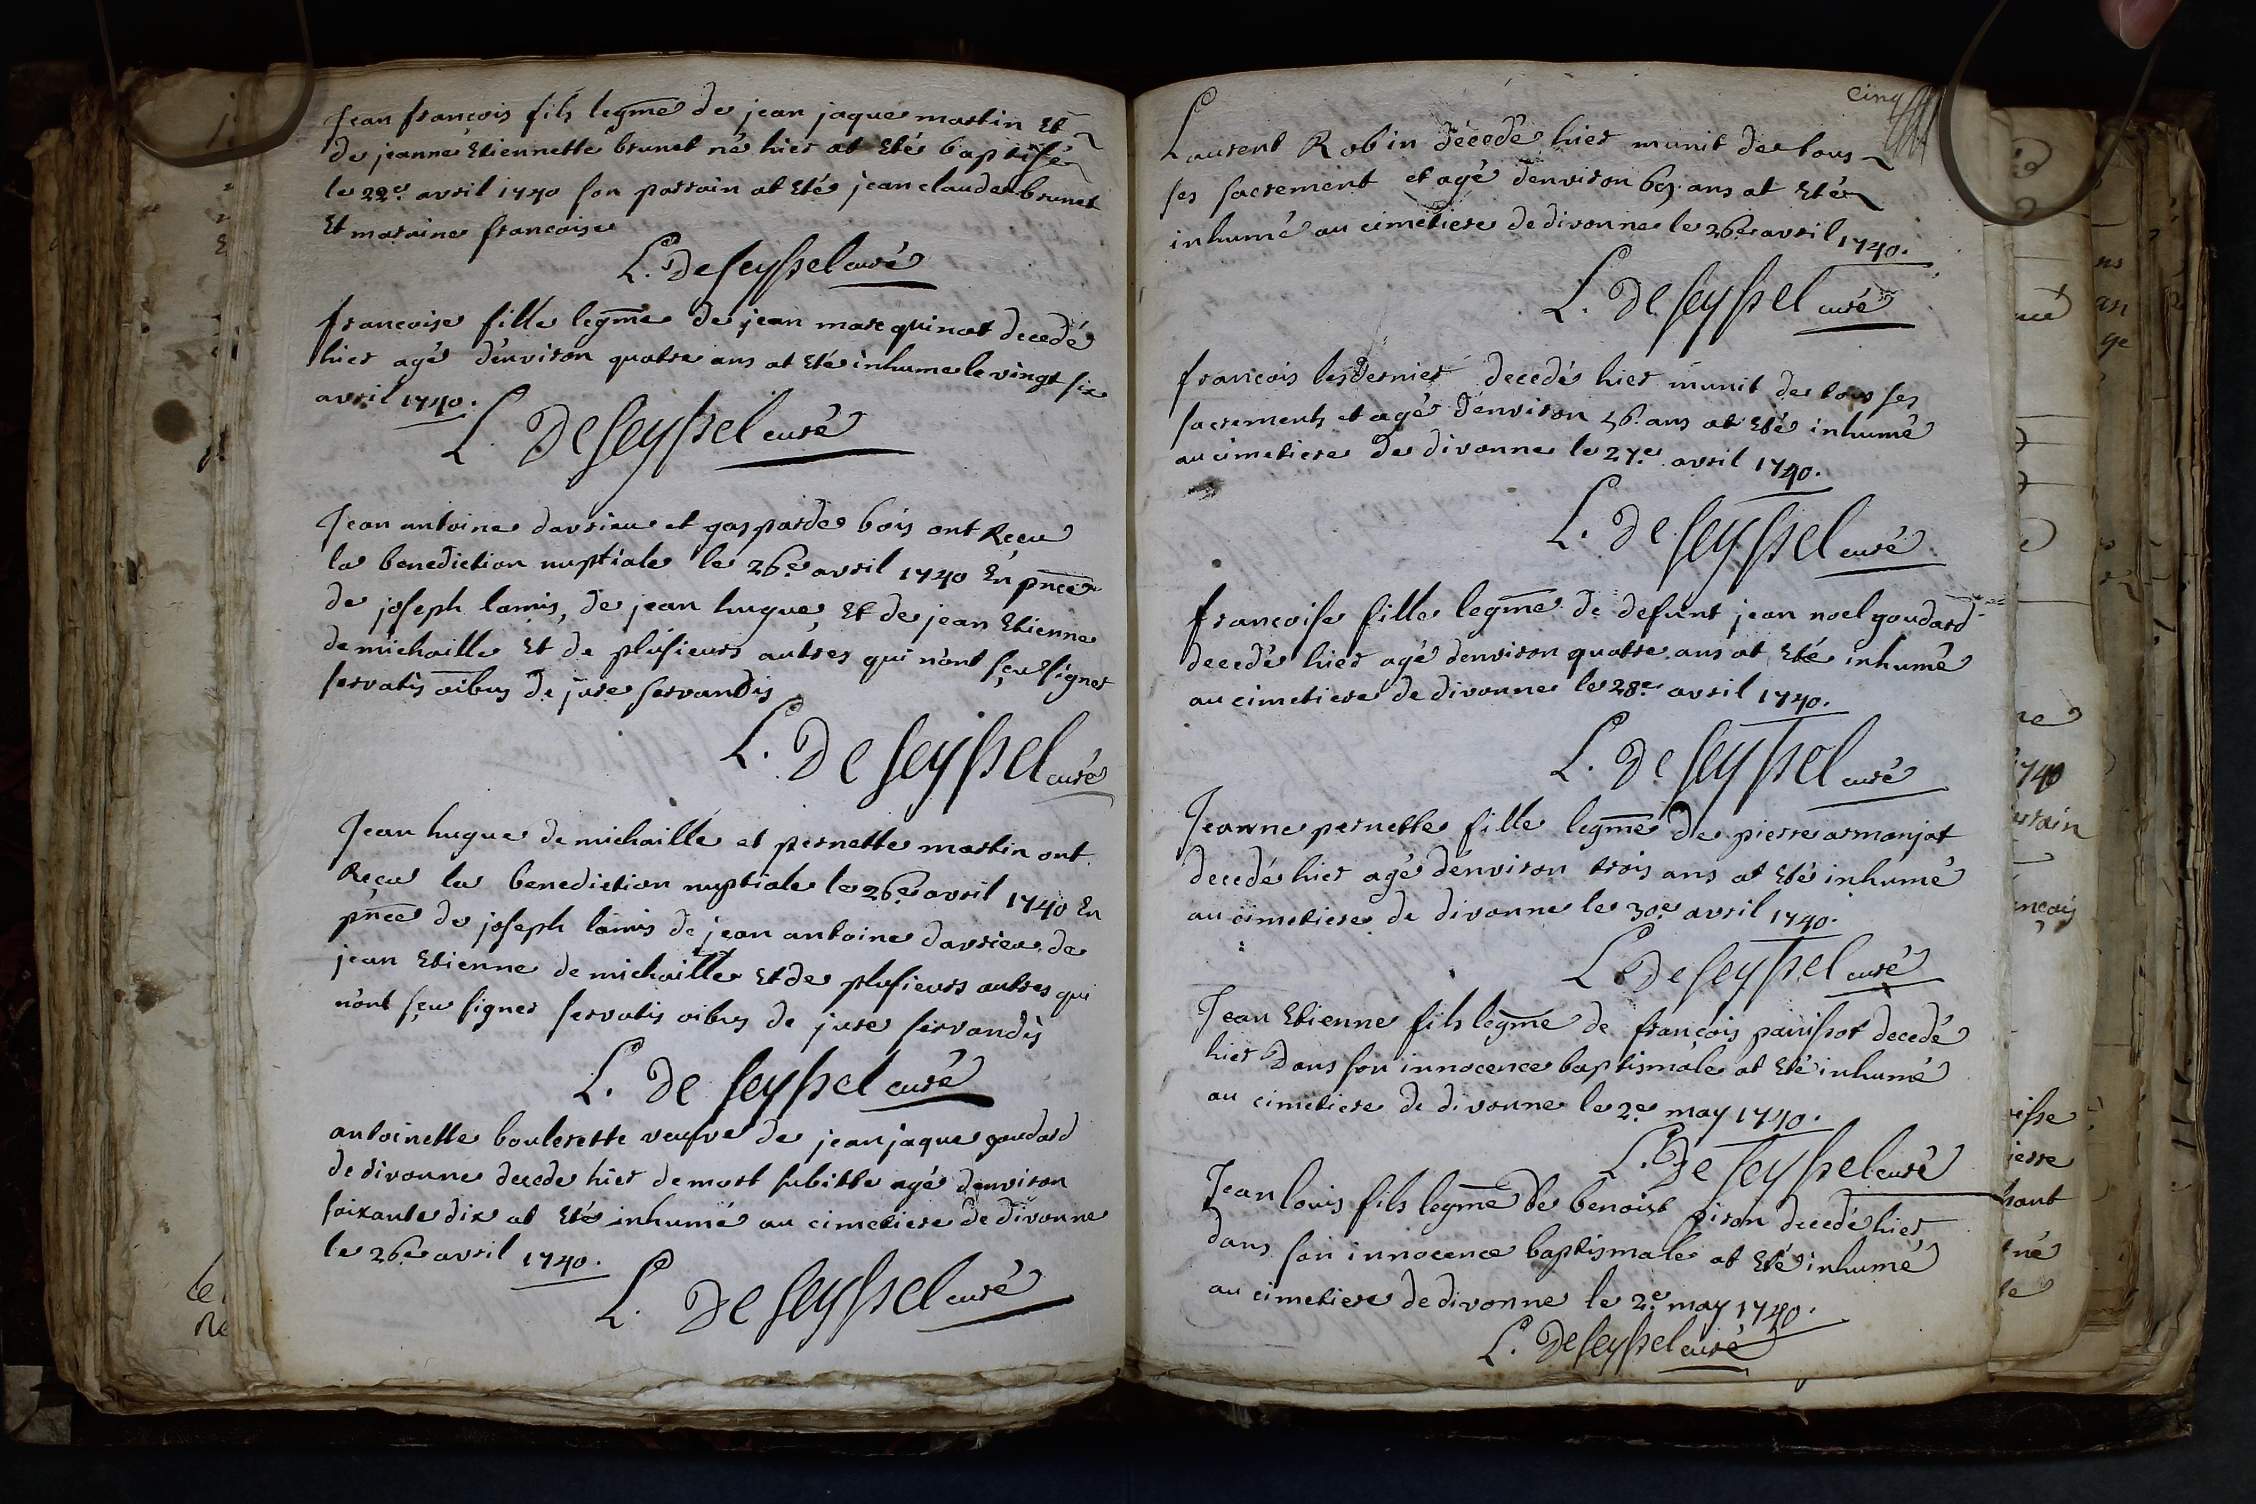 Jean françois fils legme de jean jaque martin Et
de jeanne Etiennette brunet né hier at Eté baptisé
le 22e. avril 1740 son parrain at Eté jean claude brunet
Et maraine francoise
L. De Seyssel curé
francoise fille legme de jean marc quinat decedé
hier agé d'environ quatre ans at Eté inhume le vingt six
avril 1740.
L. De Seyssel curé
Jean antoine davrieu et gasparde bois ont Reçu
la benediction nuptiale le 26e avril 1740 En pnce
de joseph lamis, de jean hugue, Et de jean Etienne
demichaille Et de plusieurs autres qui n'ont sçu signer
servatis oibus de jure servandis
L. De Seyssel curé
Jean hugue demichaille et pernette martin ont
Reçu la benediction nuptiale le 26e avril 1740 En
pnce de joseph lamis de jean antoine davrieu de
jean Etienne demichaille Et de plusieurs autres qui
n'ont sçu signer servatis oibus de jure servandis
L. De Seyssel curé
antoinette veufve de jean jaque goudard
de divonne decede hier de mort subitte agé d'environ
soixante dix at Eté inhumé au cimetiere de divonne
le 26e avril 1740.
L. De Seyssel curé
cinq
Laurent Robin décedé hier munit de tous
ses sacrement et agé denviron 69 ans at Eté
inhumé au cimetiere de divonne le 26e avril 1740.
L. De Seyssel curé
francois lesdernier decedé hier munit de tous ses
sacrements et agé d'environ 56 ans at Eté inhumé
au cimetiere de divonne le 27e avril 1740.
L. De Seyssel curé
françoise fille legme de defunt jean noel goudard
decedé hier agé denviron quatre ans at Eté inhumé
au cimetiere de divonne le 28e avril 1740.
L. De Seyssel curé
Jeanne pernette fille legme de pierre armanjat
decedé hier agé d'environ trois ans at Eté inhumé
au cimetiere de divonne le 30e avril 1740.
L. De Seyssel curé
Jean Etienne fils legme de françois panissot decedé
hier Dans son innocence baptismale at Eté inhumé
au cimetiere de divonne le 2e may 1740.
L. De Seyssel curé
Jean louis fils legme de benoist piron decedé hier
dans son innocence baptismale at Eté inhumé
au cimetiere de divonne le 2e may 1740.
L. De Seyssel curé